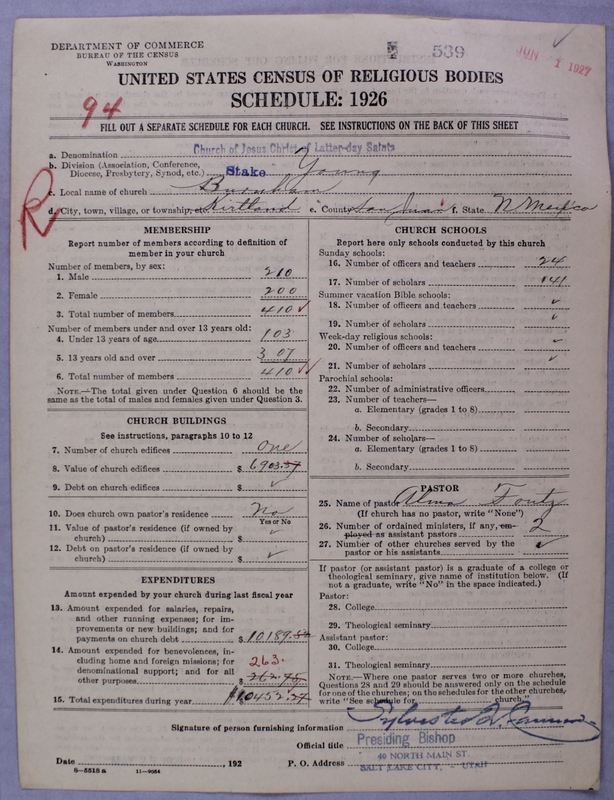 DEPARTMENT OF COMMERCE
BUREAU OF THE CENSUS
WASHINGTON
539
JUN 1 1927
UNITED STATES CENSUS OF RELIGIOUS BODIES
SCHEDULE: 1926
94
FILL OUT A SEPARATE SCHEDULE FOR EACH CHURCH. SEE INSTRUCTIONS ON THE BACK OF THIS SHEET
R
a. Denomination Church of Jesus Christ of Latter-day Saints
b. Division (Association, Conference, Diocese, Presbytery, Synod, etc.) Stake Young
c. Local name of church Burnham
d. City, town, village, or township, etc. Kirtland e. County San Juan f. State N Mexico
MEMBERSHIP
Report number of members according to definition of
member in your church
Number of members, by sex:
1. Male 210
2. Female 200
3. Total number of members 410
Number of members under and over 13 years old:
4. Under 13 years of age 103
5. 13 years old and over 307
6. Total number of members 410
NOTE.—The total given under Question 6 should be
same as the total of males and females given under Question 3.
CHURCH BUILDINGS
See instructions, paragraphs 10 to 12
7. Number of church edifices One
8. Value of church edifices $ 6903.57
9. Debt on church edifices $
10. Does church own pastor's residence No
Yes or No
11. Value of pastor's residence (if owned by
church) $
12. Debt on pastor's residence (if owned by
church) $
EXPENDITURES
Amount expended by your church during last fiscal year
13. Amount expended for salaries, repairs,
and other running expenses; for im-
provements or new buildings; and for
payments on church debt $ 10189.
14. Amount expended for benevolences, in-
cluding home and foreign missions; for
denominational support; and for all 263.
other purposes $ 262.75
15. Total expenditures during year $10452.27
CHURCH SCHOOLS
Report here only schools conducted by this church
Sunday schools:
16. Number of officers and teachers 24
17. Number of scholars 141
Summer vacation Bible schools:
18. Number of officers and teachers
19. Number of scholars
Week-day religious schools:
20. Number of officers and teachers
21. Number of scholars
Parochial schools:
22. Number of administrative officers
23. Number of teachers—
a. Elementary (grades 1 to 8)
b. Secondary
24. Number of scholars—
a. Elementary (grades 1 to 8)
b. Secondary
PASTOR
25. Name of pastor Alma Foutz
(If church has no pastor, write "None")
26. Number of ordained ministers, if any, em-
ployed as assistant pastors 2
27. Number of other churches served by the
pastor or his assistants
If pastor (or assistant pastor) is a graduate of a college or
theological seminary, give name of institution below. (If
not a graduate, write "No" in the space indicated.)
Pastor:
28. College
29. Theological seminary
Assistant pastor:
30. College
31. Theological seminary
NOTE.—Where one pastor serves two or more churches,
Questions 28 and 29 should be answered only on the schedule
for one of the churches; on the schedules for the other churches,
write "See schedule for church."
Signature of person furnishing information Sylvester Q. Cannon
Official title Presiding Bishop
Date , 192 P. O. Address 40 NORTH MAIN ST
SALT LAKE CITY, UTAH
8—5518a 11—9064